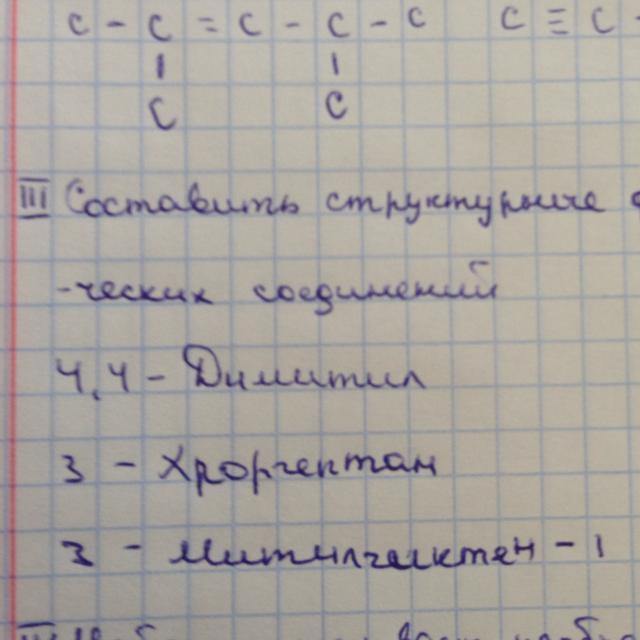 C - C = C - C - C   C ≡ C -
|   |
C   C
III Составить структурные
-ческих соединений
4,4 - Димитил
3 - Хроргектан
3 - митилгектен - 1